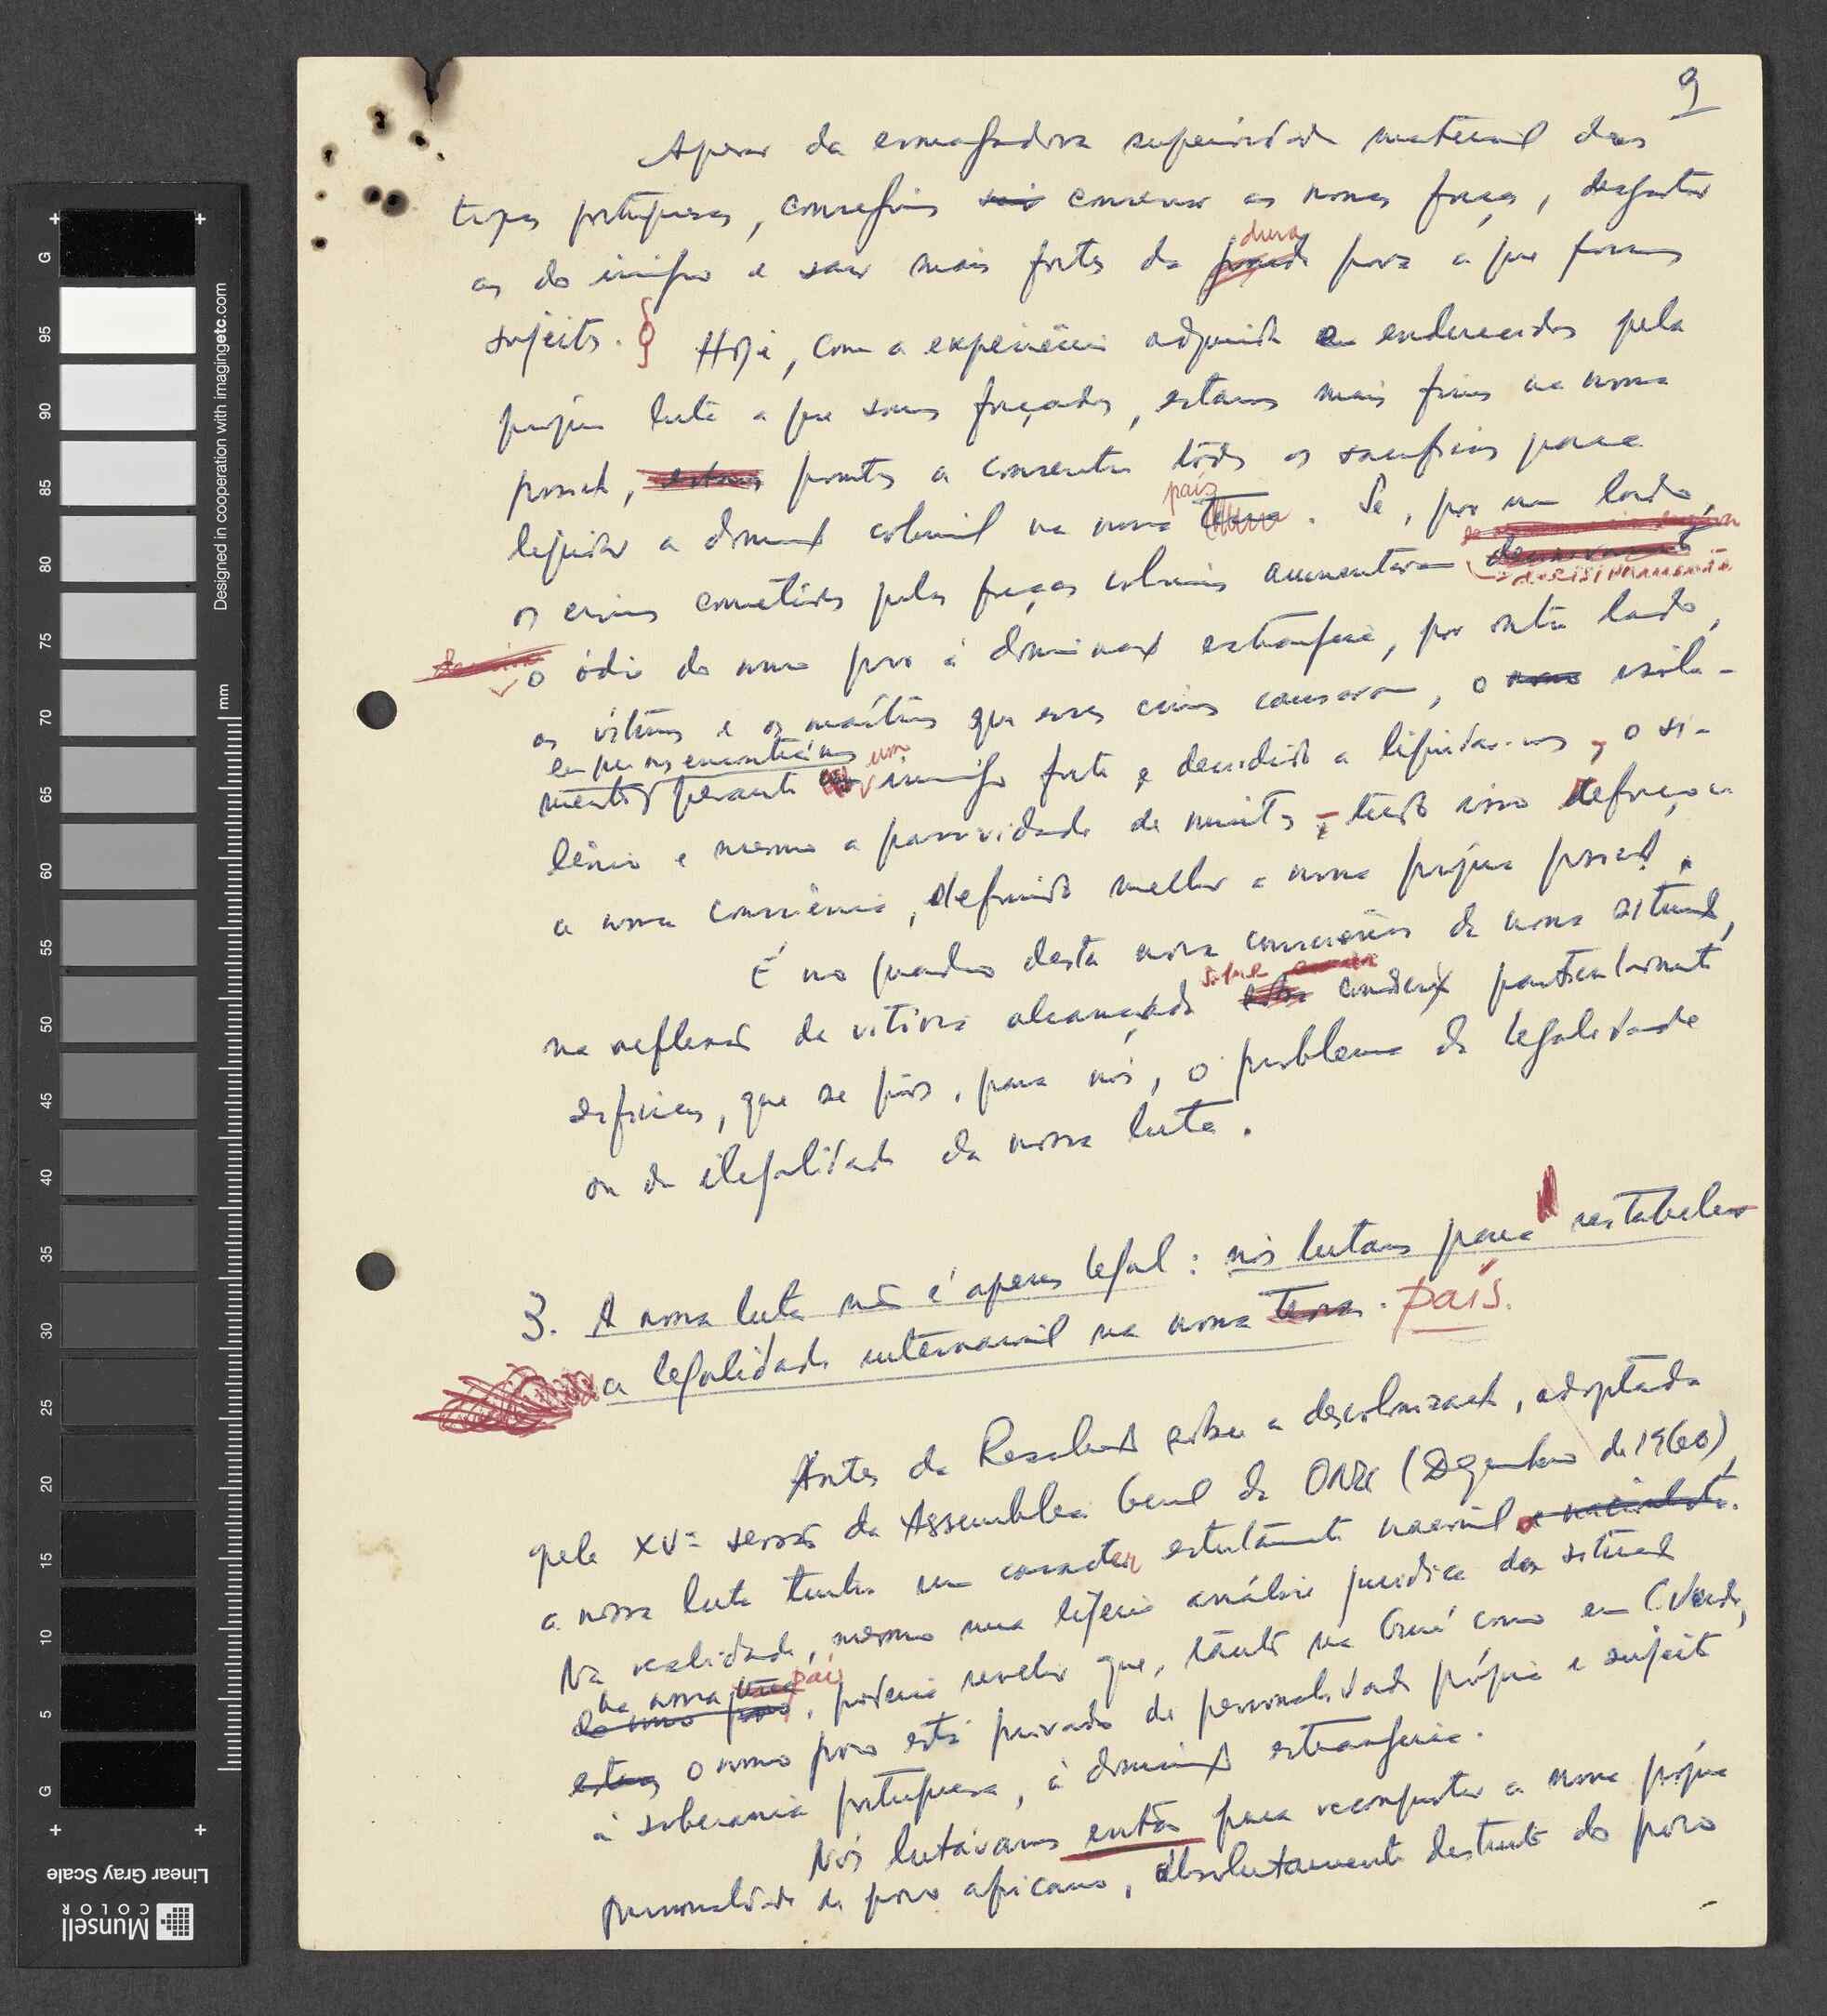 9
Apesar da esmagadora superioridade material das
tropas portuguesas, conseguimos conservar as nossas forças, desgastar
as do inimigo e sair mais fortes da dura prova a que fomos
sujeitos. Hoje, com a experiência adquirida e endurecidos pela
própria luta a que somos forçados, estamos mais firmes na nossa
posição, prontos a consentir todos os sacrifícios para
liquidar a dominação colonial no nosso país. Se, por um lado,
os crimes cometidos pelas forças coloniais aumentaram decisivamente
o ódio do nosso povo à dominação estrangeira, por outro lado,
as vítimas e os mártires que esses crimes causaram, o isola-
mento em que nos encontrámos perante um inimigo forte e decidido a liquidar-nos, o si-
lêncio e mesmo a passividade de muitos, tudo isso reforçou
a nossa consciência, definindo melhor a nossa própria posição.
É no quadro desta nova consciência da nossa situação,
na reflexão da vitória alcançada sobre condições particularmente
difíceis, que se pôs, para nós, o problema da legalidade
ou da ilegalidade da nossa luta.
3. A nossa luta não é apenas legal: nós lutamos para restabelecer
a legalidade internacional na nossa terra. país.
Antes da Resolução sobre a descolonização, adoptada
pela XVª sessão da Assembleia Geral da ONU (Dezembro de 1960),
a nossa luta tinha um caracter estritamente nacional
Na realidade, mesmo uma ligeira análise jurídica da situação
na nossa país, poderia revelar que, tanto na Guiné como em C. Verde,
o nosso povo está privado de personalidade própria e sujeito
à soberania portuguesa, à dominação estrangeira.
Nós lutávamos então para reconquistar a nossa própria
personalidade de povo africano, absolutamente distinto do povo
Designed in cooperation with imagingetc.com
mm
G
95
90
85
80
75
70
65
60
55
50
45
40
35
30
25
20
15
10
5
G
Linear Gray Scale
Munsell
COLOR